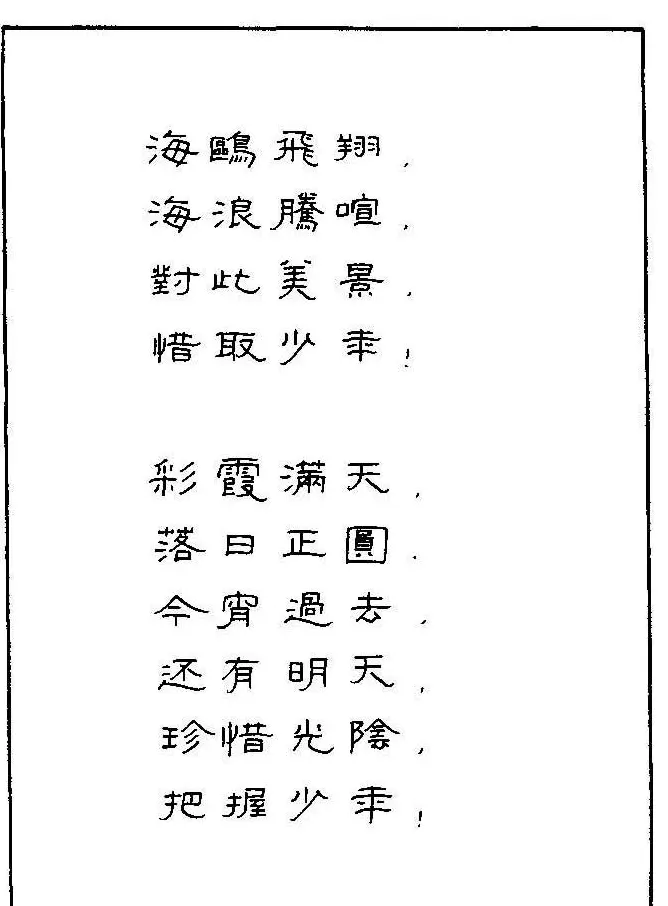 海鷗飛翔，
海浪騰喧，
對此美景，
惜取少年！
彩霞滿天，
落日正圓．
今宵過去，
还有明天，
珍惜光陰，
把握少年！